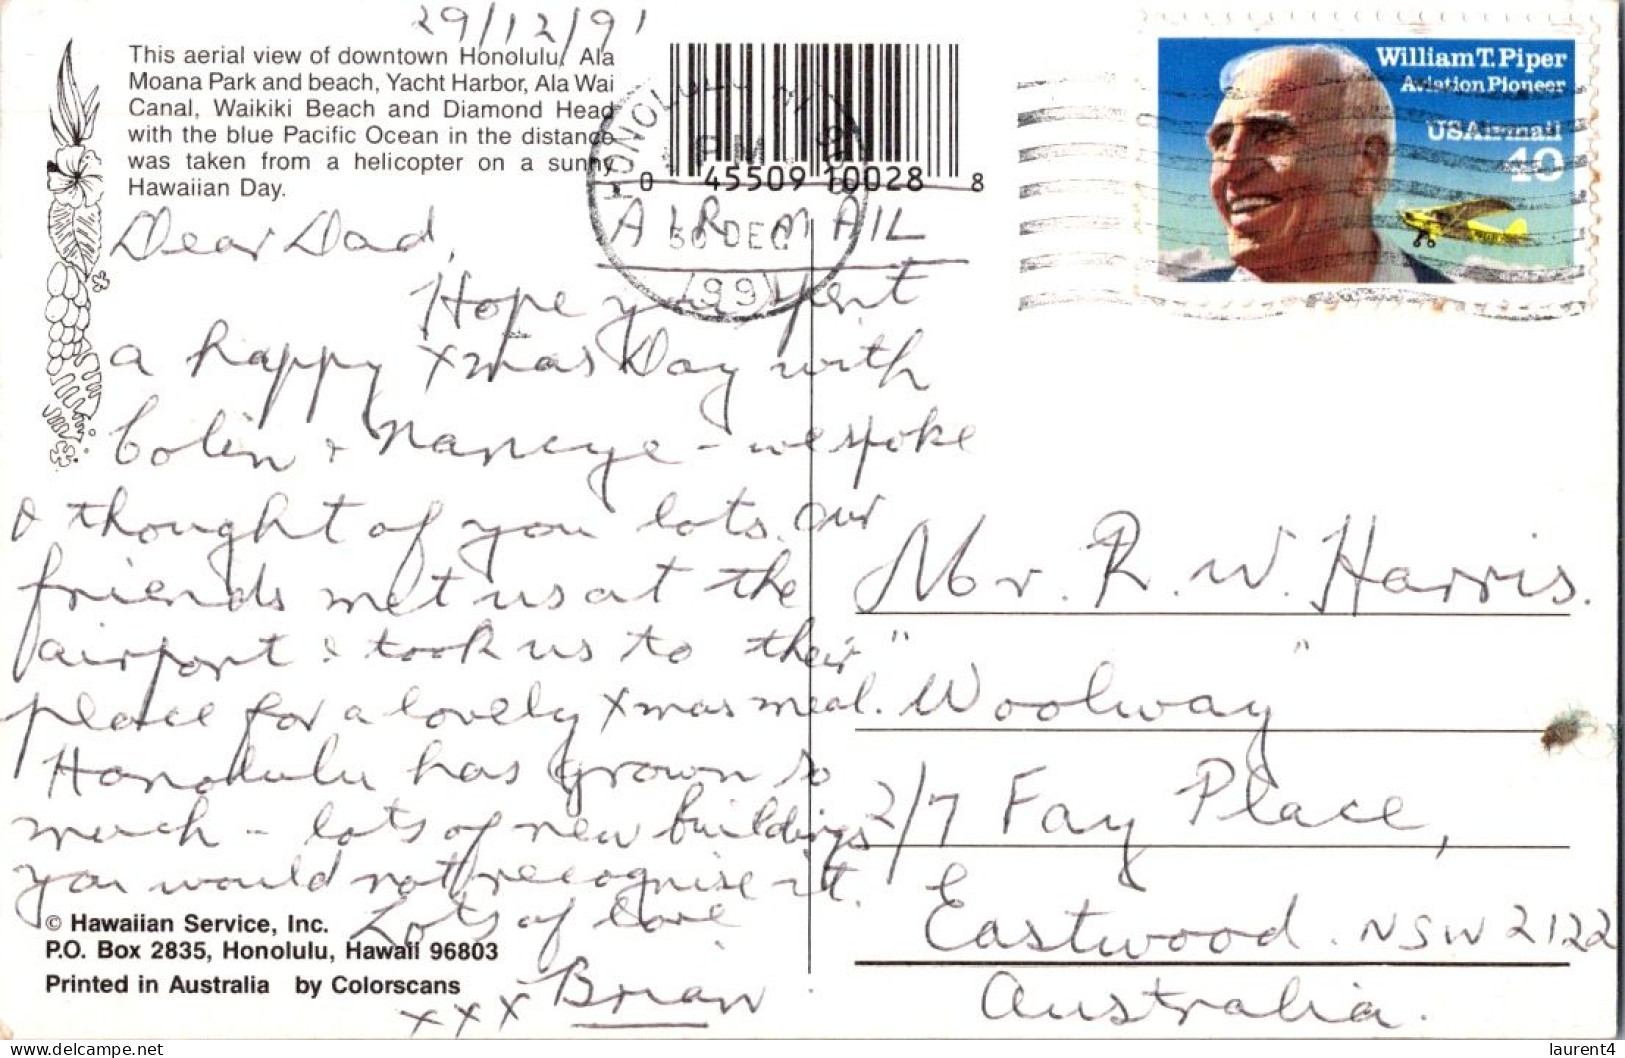 29/12/91
This aerial view of downtown Honolulu, Ala
Moana Park and beach, Yacht Harbor, Ala Wai
Canal, Waikiki Beach and Diamond Head
with the blue Pacific Ocean in the distance
was taken from a helicopter on a sunny
Hawaiian Day.
0 45509 10028 8
HONOLULU
PM
30 DEC
1991
William T. Piper
Aviation Pioneer
USAirmail
40
AIR MAIL
Dear Dad,
Hope you spent
a happy Xmas Day with
Colin & Nancye - we spoke
& thought of you lots. Our
friends met us at the
airport & took us to their
place for a lovely Xmas meal.
Honolulu has grown so
much - lots of new buildings
you would not recognise it.
Lots of love
Brian
xxx
© Hawaiian Service, Inc.
P.O. Box 2835, Honolulu, Hawaii 96803
Printed in Australia by Colorscans
Mr. R. W. Harris.
"Woolway"
2/7 Fay Place,
Eastwood. NSW 2122
Australia.
www.delcampe.net
laurent4